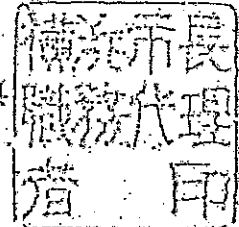 横浜市長
職務代理
者印